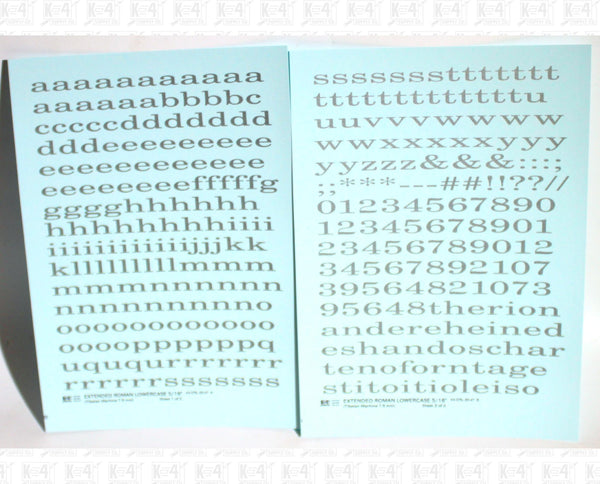 aaaaaaaaaaa
aaaaaabbbbc
cccccddddddd
dddeeeeeeeee
eeeeeeeeeeee
eeeeeeeefffffg
gggghhhhhhh
hhhhhhhhhiiii
iiiiiiiiiiiiiijjjkk
klllllllllllmmm
mmmnnnnnnn
nnnnnnnnnno
ooooooooooo
oooopppppppq
uququrrrrrrr
rrrrrrrsssssss
EXTENDED ROMAN LOWERCASE 5/16"
Sheet 1 of 2
ssssssssttttttt
tttttttttttttttu
uuvvvwwww
wwxxxxxyyy
yyzzz&&&:::;
;;***---##!!??//
01234567890
12345678901
23456789012
34567892107
39564821073
95648therion
andereheined
eshandoschar
tenoforntage
stitoitioleiso
EXTENDED ROMAN LOWERCASE 5/16"
Sheet 2 of 2